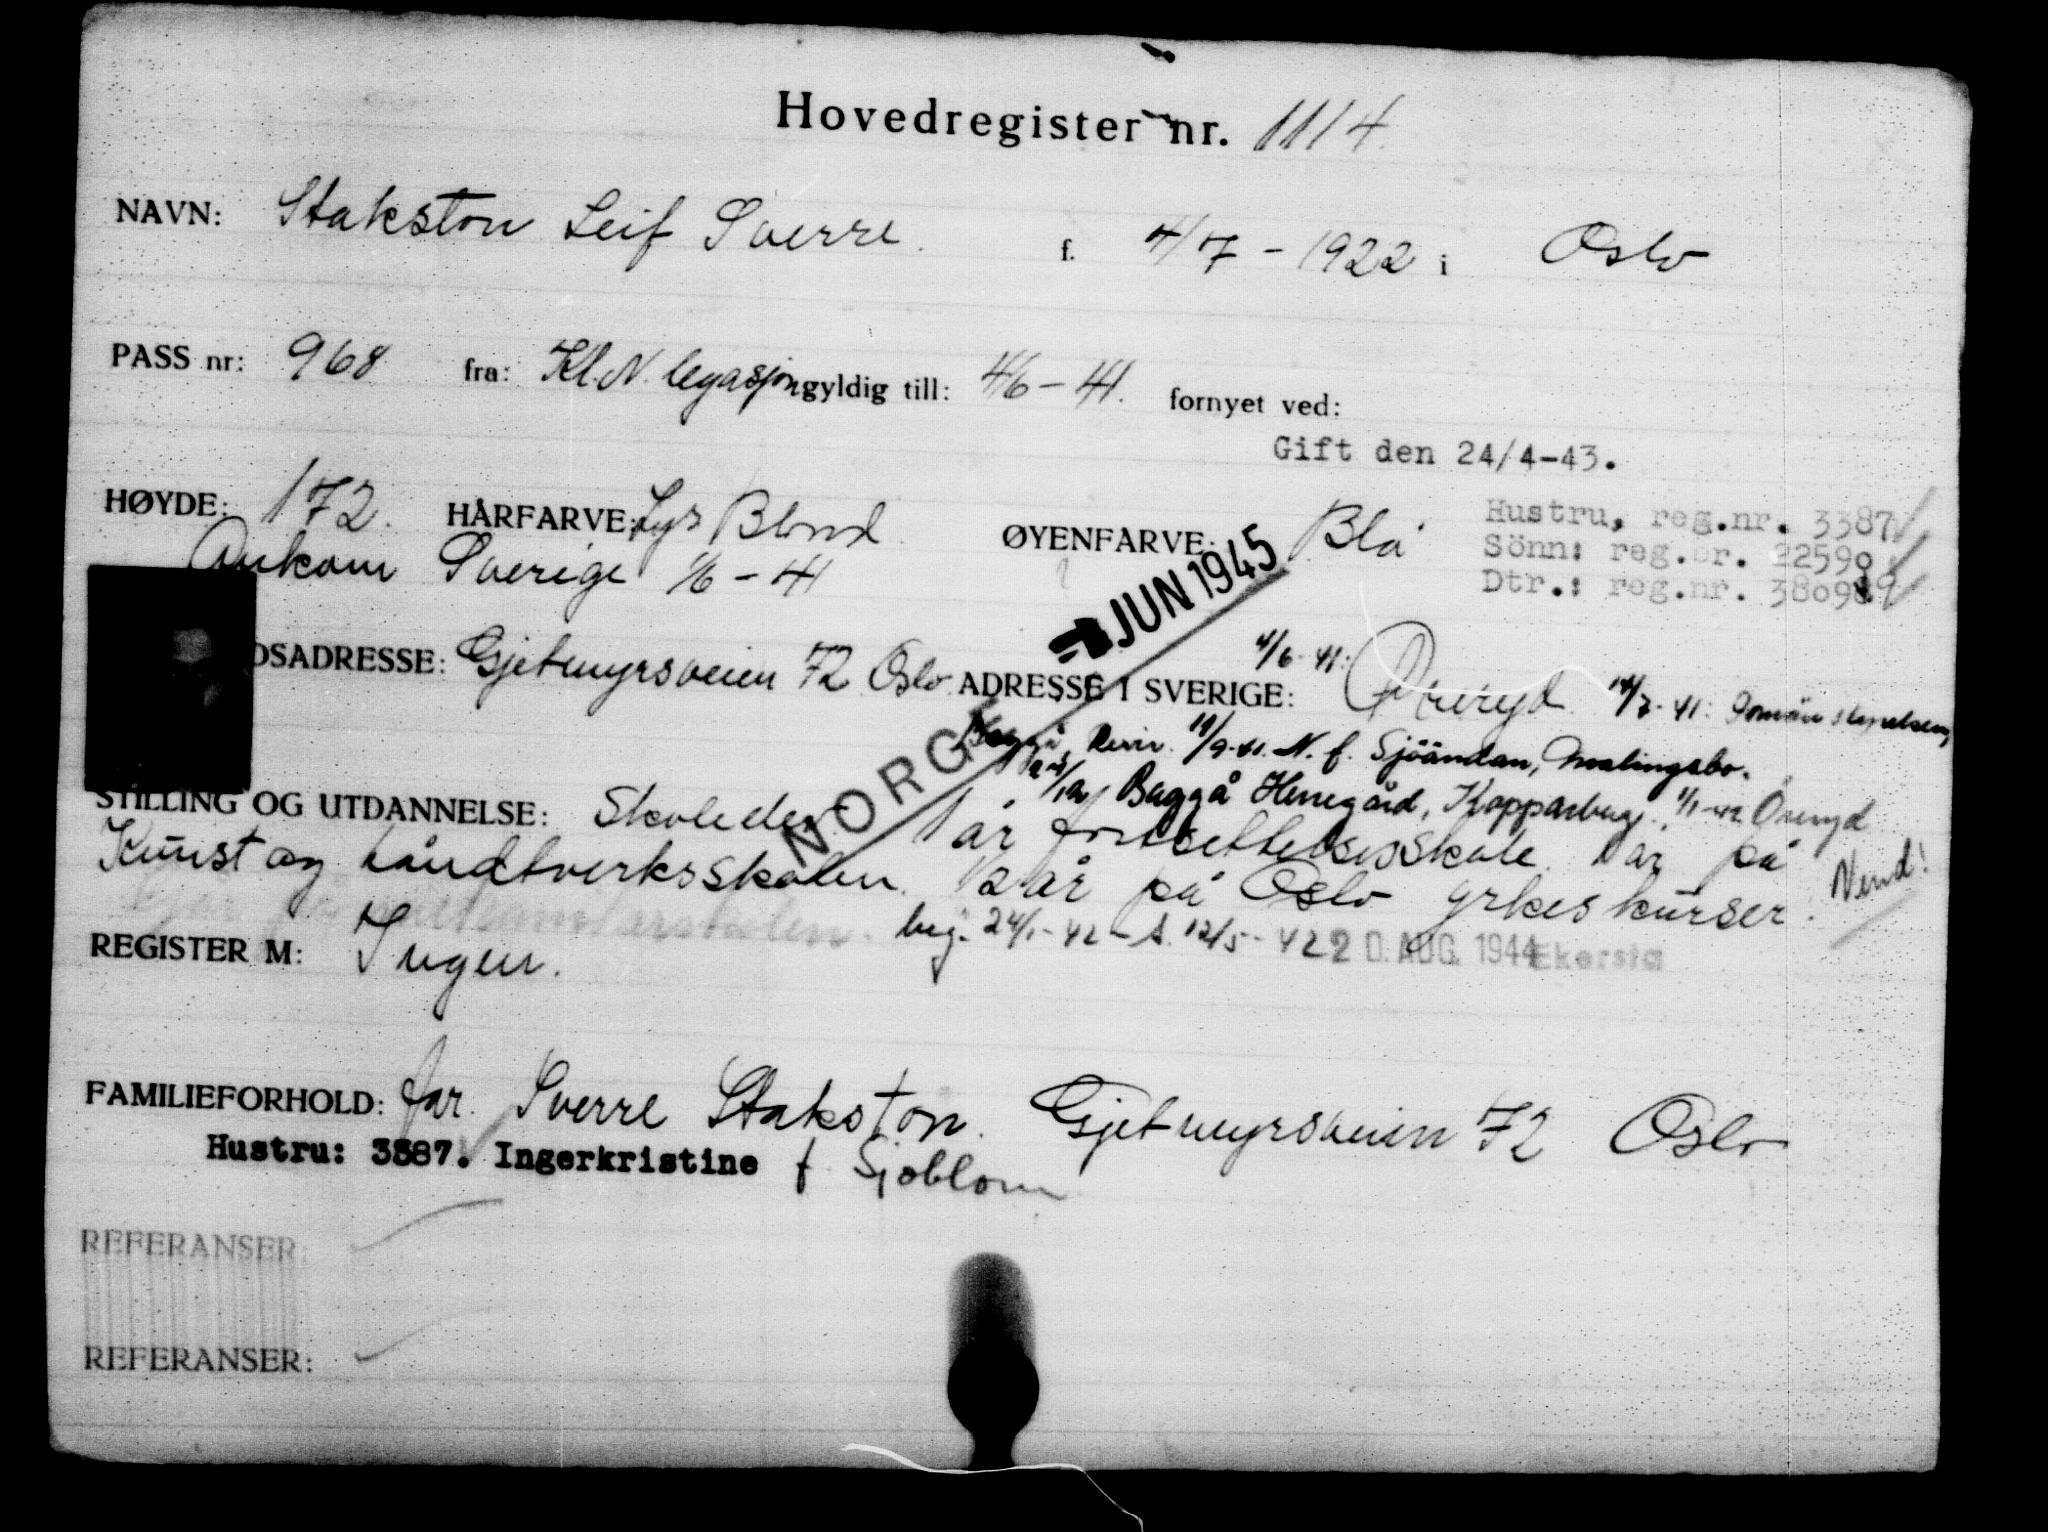 Hovedregister nr. 1114.
NAVN: Stakston Leif Sverre. f. 4/7 - 1922 i Oslo
PASS nr: 968 fra: Kl. N. legasjon gyldig till: 4/6 - 41. fornyet ved:
Gift den 24/4-43.
HØYDE: 172. HÅRFARVE: Lys Blond ØYENFARVE: Blå
Hustru, reg.nr. 3387
Sönn: reg.nr. 22590
Dtr.: reg.nr.
Ankom Sverige 1/6 - 41
JUN 1945
NORGE
DSADRESSE: Gjetmyrsveien 72 Oslo ADRESSE I SVERIGE: 4/6-41: Öreryd. 14/7-41: Domänstyrelsen,
Baggå Revir. 11/9-41. N. f. Sjöändan, Malingsbo.
Baggå Herregård, Kopparberg. 1/1-42 Öreryd
STILLING OG UTDANNELSE: Skoleder. 1 år fortsettelsesskole. 1 år på
Kunst og håndtverksskolen. 1/2 år på Oslo yrkeskurser. Vend!
beg. 24/1-42 - A. 12/5-42 20. AUG. 1944 Ekersta
REGISTER M: Ingen.
FAMILIEFORHOLD: far. Sverre Stakston. Gjetmyrsveien 72 Oslo
Hustru: 3387. Ingerkristine f Sjöblom
REFERANSER:
REFERANSER: